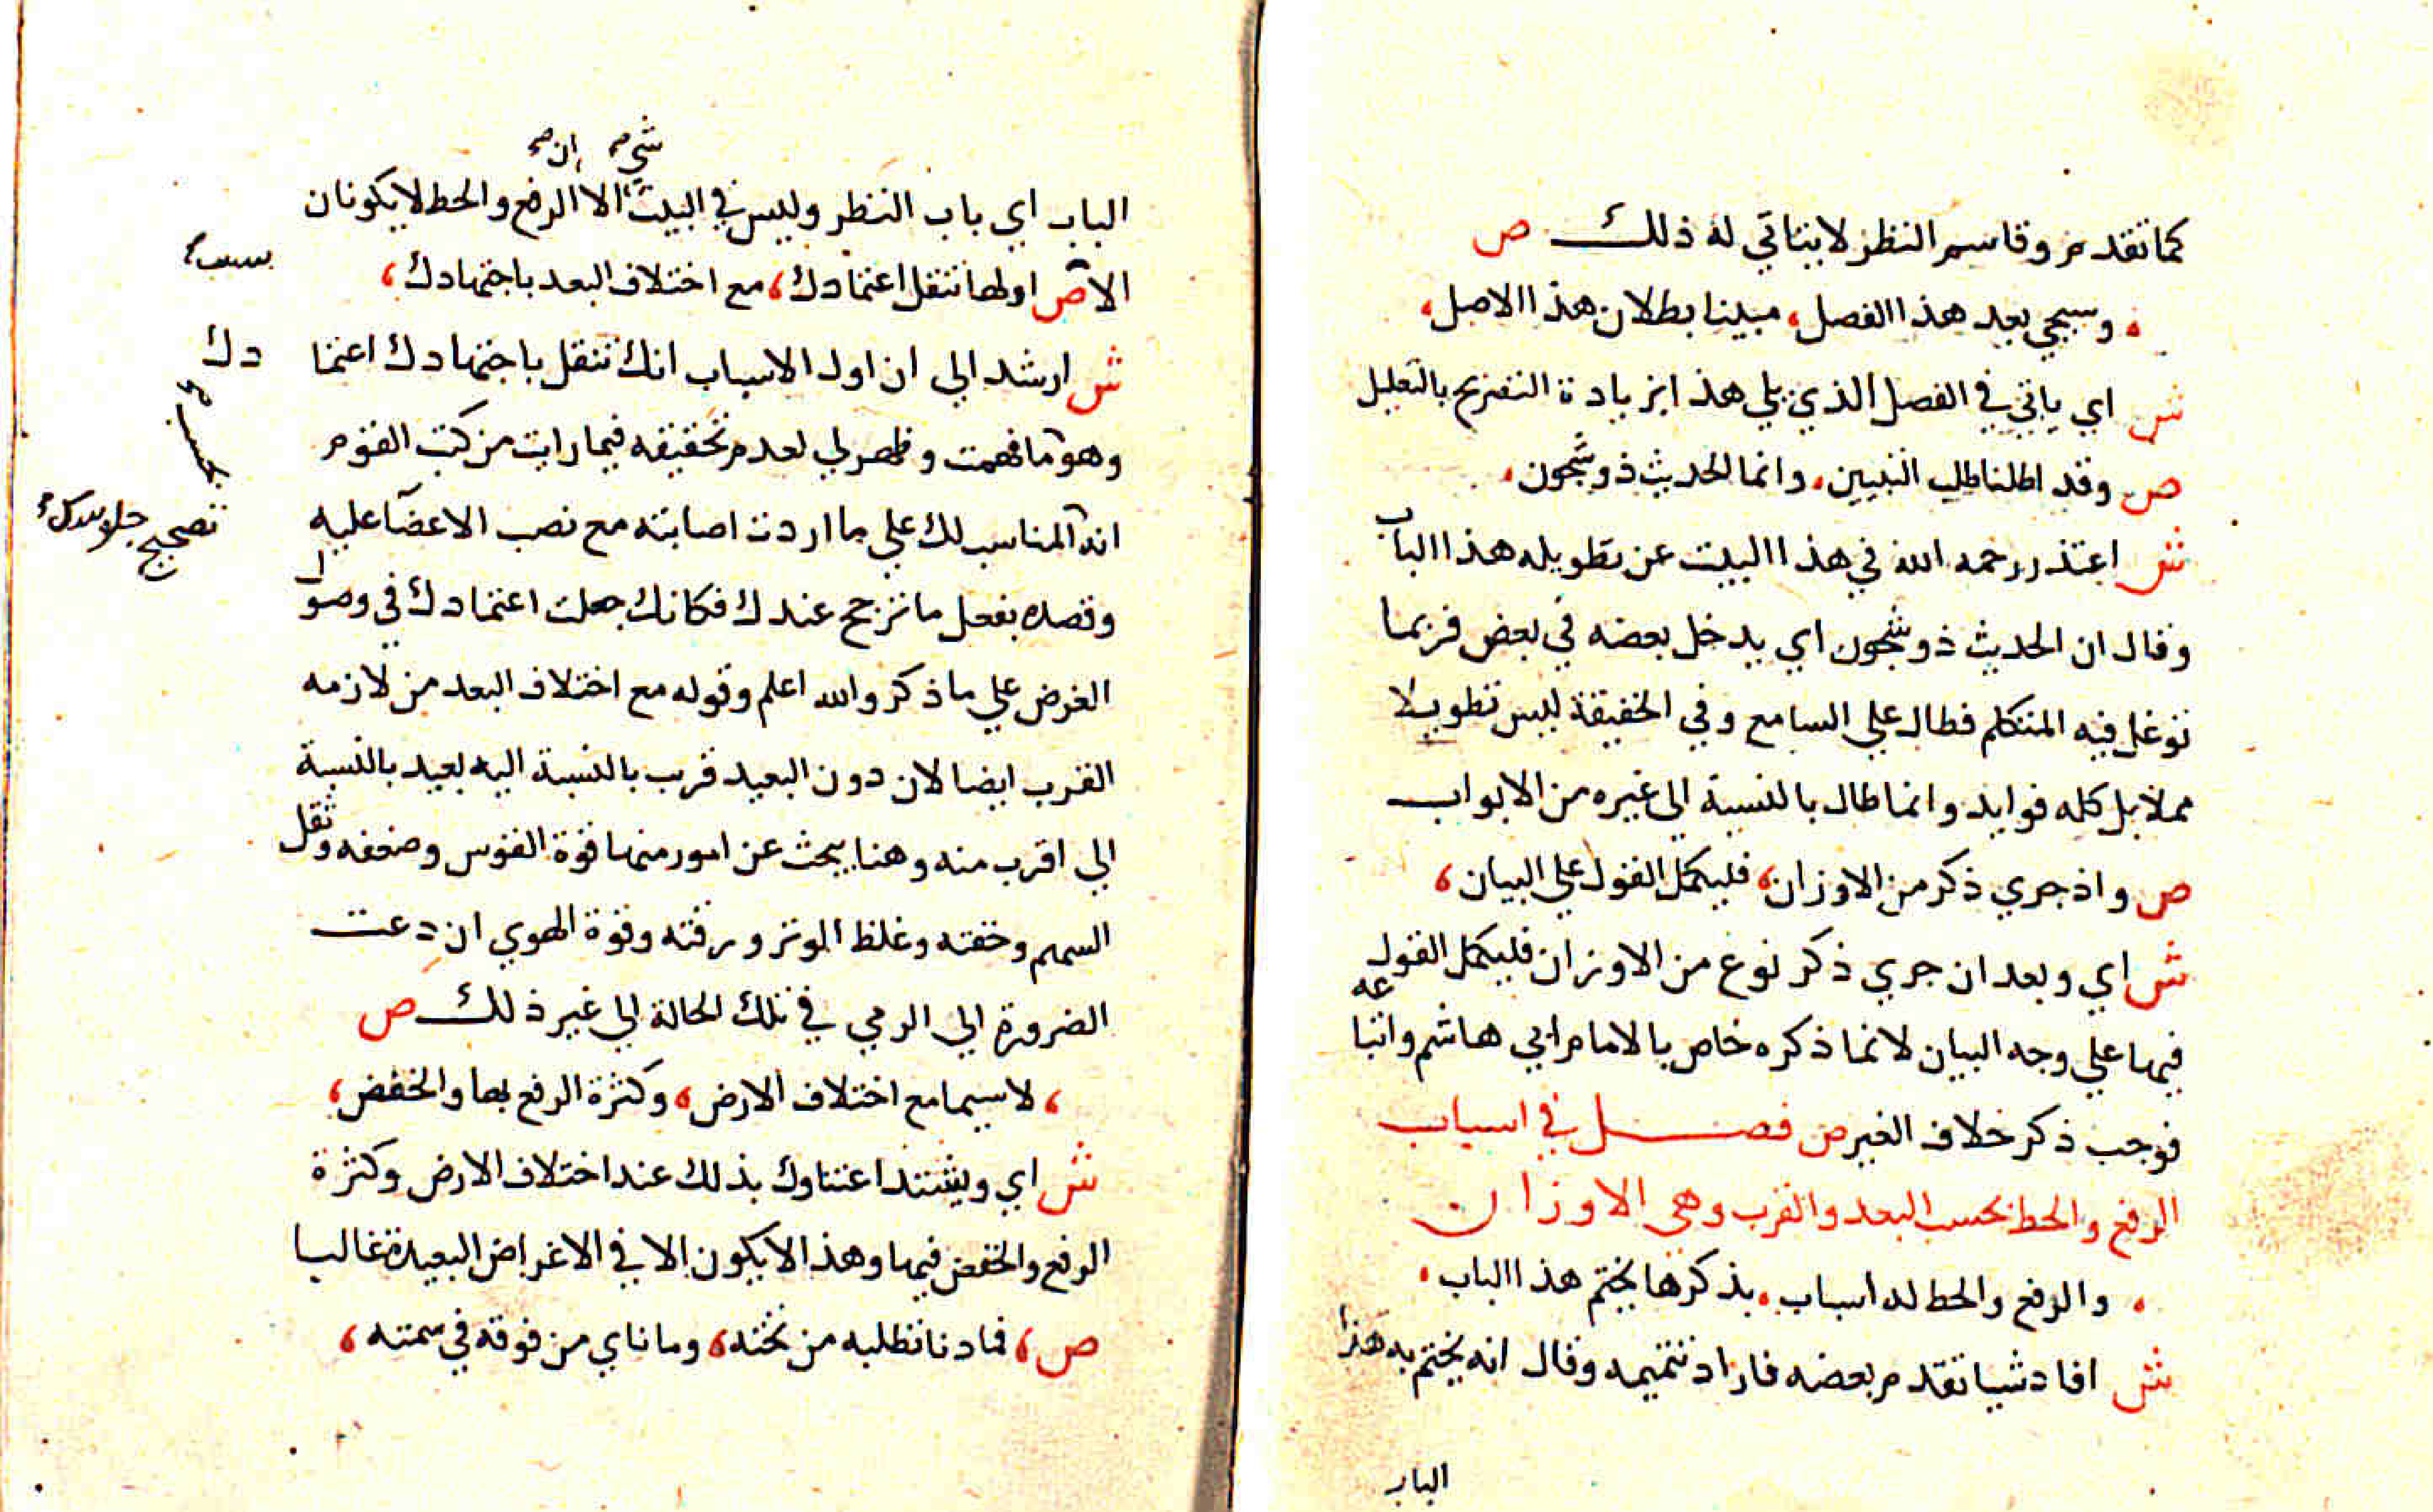 كما تقدم وقاسم النظر لا يتاتي له ذلك ص
وسيجي بعد هذا الفصل، مبينا بطلان هذا الاصل،
ش اي ياتي في الفصل الذي يلي هذا بزيادة التفريع بالتعليل
ص وقد اطلنا طلب التبيين، وانما الحديث ذو شجون،
ش اعتذر رحمه الله في هذا البيت عن تطويله هذا الباب
وقال ان الحديث ذو شجون اي يدخل بعضه في بعض فربما
توغل فيه المتكلم فطال علي السامع وفي الحقيقة ليس تطويلا
مملا بل كله فوايد وانما طال بالنسبة الي غيره من الابواب
ص واذ جري ذكر من الاوزان، فليكمل القول علي البيان،
ش اي وبعد ان جري ذكر نوع من الاوزان فليكمل القول
فيها علي وجه البيان لانما ذكره خاص بالامام ابي هاشم واتباعه
فوجب ذكر خلاف الغير ص فصل في اسباب
الرفع والحط بحسب البعد والقرب وهي الاوزان
والرفع والحط له اسباب، بذكرها يختم هذا الباب،
ش افاد شيا تقدم بعضه فاراد تتميمه وقال انه يختم به هذا
الباب
شي ان
الباب اي باب النظر وليس في البيت الا الرفع والحط لا يكونان
الا ص اولها تنقل اعتمادك، مع اختلاف البعد باجتهادك،
بسبب
ش ارشد الي ان اول الاسباب انك تنقل باجتهادك اعتمادك
وهو ما فهمت وظهر لي لعدم تحقيقه فيما رايت من كتب القوم
بحسب
انه المناسب لك علي ما اردت اصابته مع نصب الاعضا عليه
تصحيح جلوسك
وقصده بفعل ما ترجح عندك فكانك جعلت اعتمادك في وصول
الغرض علي ما ذكر والله اعلم وقوله مع اختلاف البعد من لازمه
القرب ايضا لان دون البعيد قرب بالنسبة اليه بعيد بالنسبة
الي اقرب منه وهنا يبحث عن امور منها قوة القوس وضعفه وثقل
السهم وخفته وغلظ الوتر ورقته وقوة الهوي ان دعت
الضرورة الي الرمي في تلك الحالة الي غير ذلك ص
، لا سيما مع اختلاف الارض، وكثرة الرفع بها والخفض،
ش اي ويشتد اعتناوك بذلك عند اختلاف الارض وكثرة
الرفع والخفض فيها وهذا لا يكون الا في الاغراض البعيدة غالبا
ص، فما دنا تطلبه من تحته، وما ناي من فوقه في سمته،